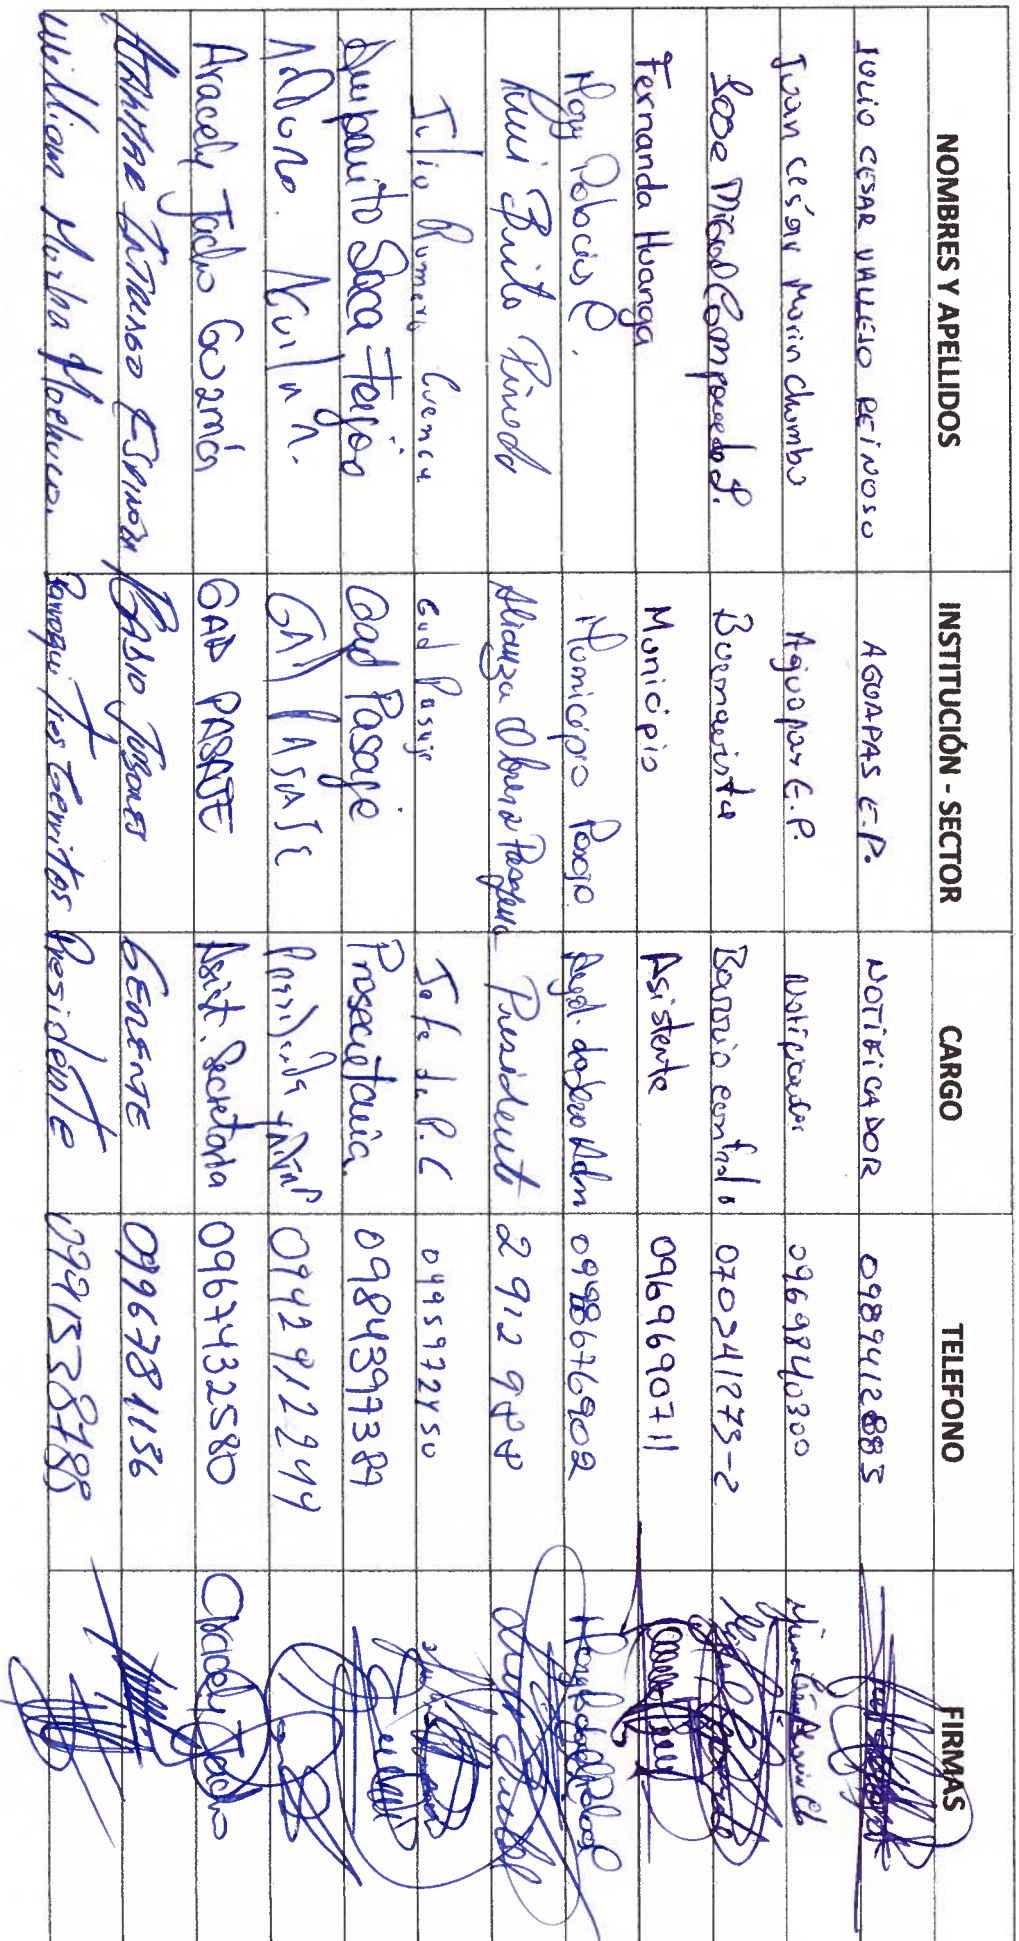 NOMBRES Y APELLIDOS INSTITUCIÓN - SECTOR CARGO TELEFONO FIRMAS
JULIO CESAR VALLEJO REINOSO AGUAPAS E.P. NOTIFICADOR 0989412885
Juan César Morin chumbo Aguapas E.P. Notificador 0969840300
Jose Miguel Campoverde S. Buenavista Barrio central 070341275-2
Fernanda Huanga Municipio Asistente 0969690711
Palacios Municipio Pasaje Adm 0998676902
Brito Pineda Alianza Obrera Pasajeña Presidente 2912988
Julio Romero Cuenca Gad Pasaje Jefe de P.C 0959972450
Amparito Saca Gad Pasaje Prosecretaria 0984397389
GAD PASAJE 0942912244
Aracely Tacho Guzmán GAD PASAJE Asist. Secretaria 0967432580
INTRIAGO ESPINOZA RADIO JUBONES GERENTE 0996781136
William Presidente 0991538788